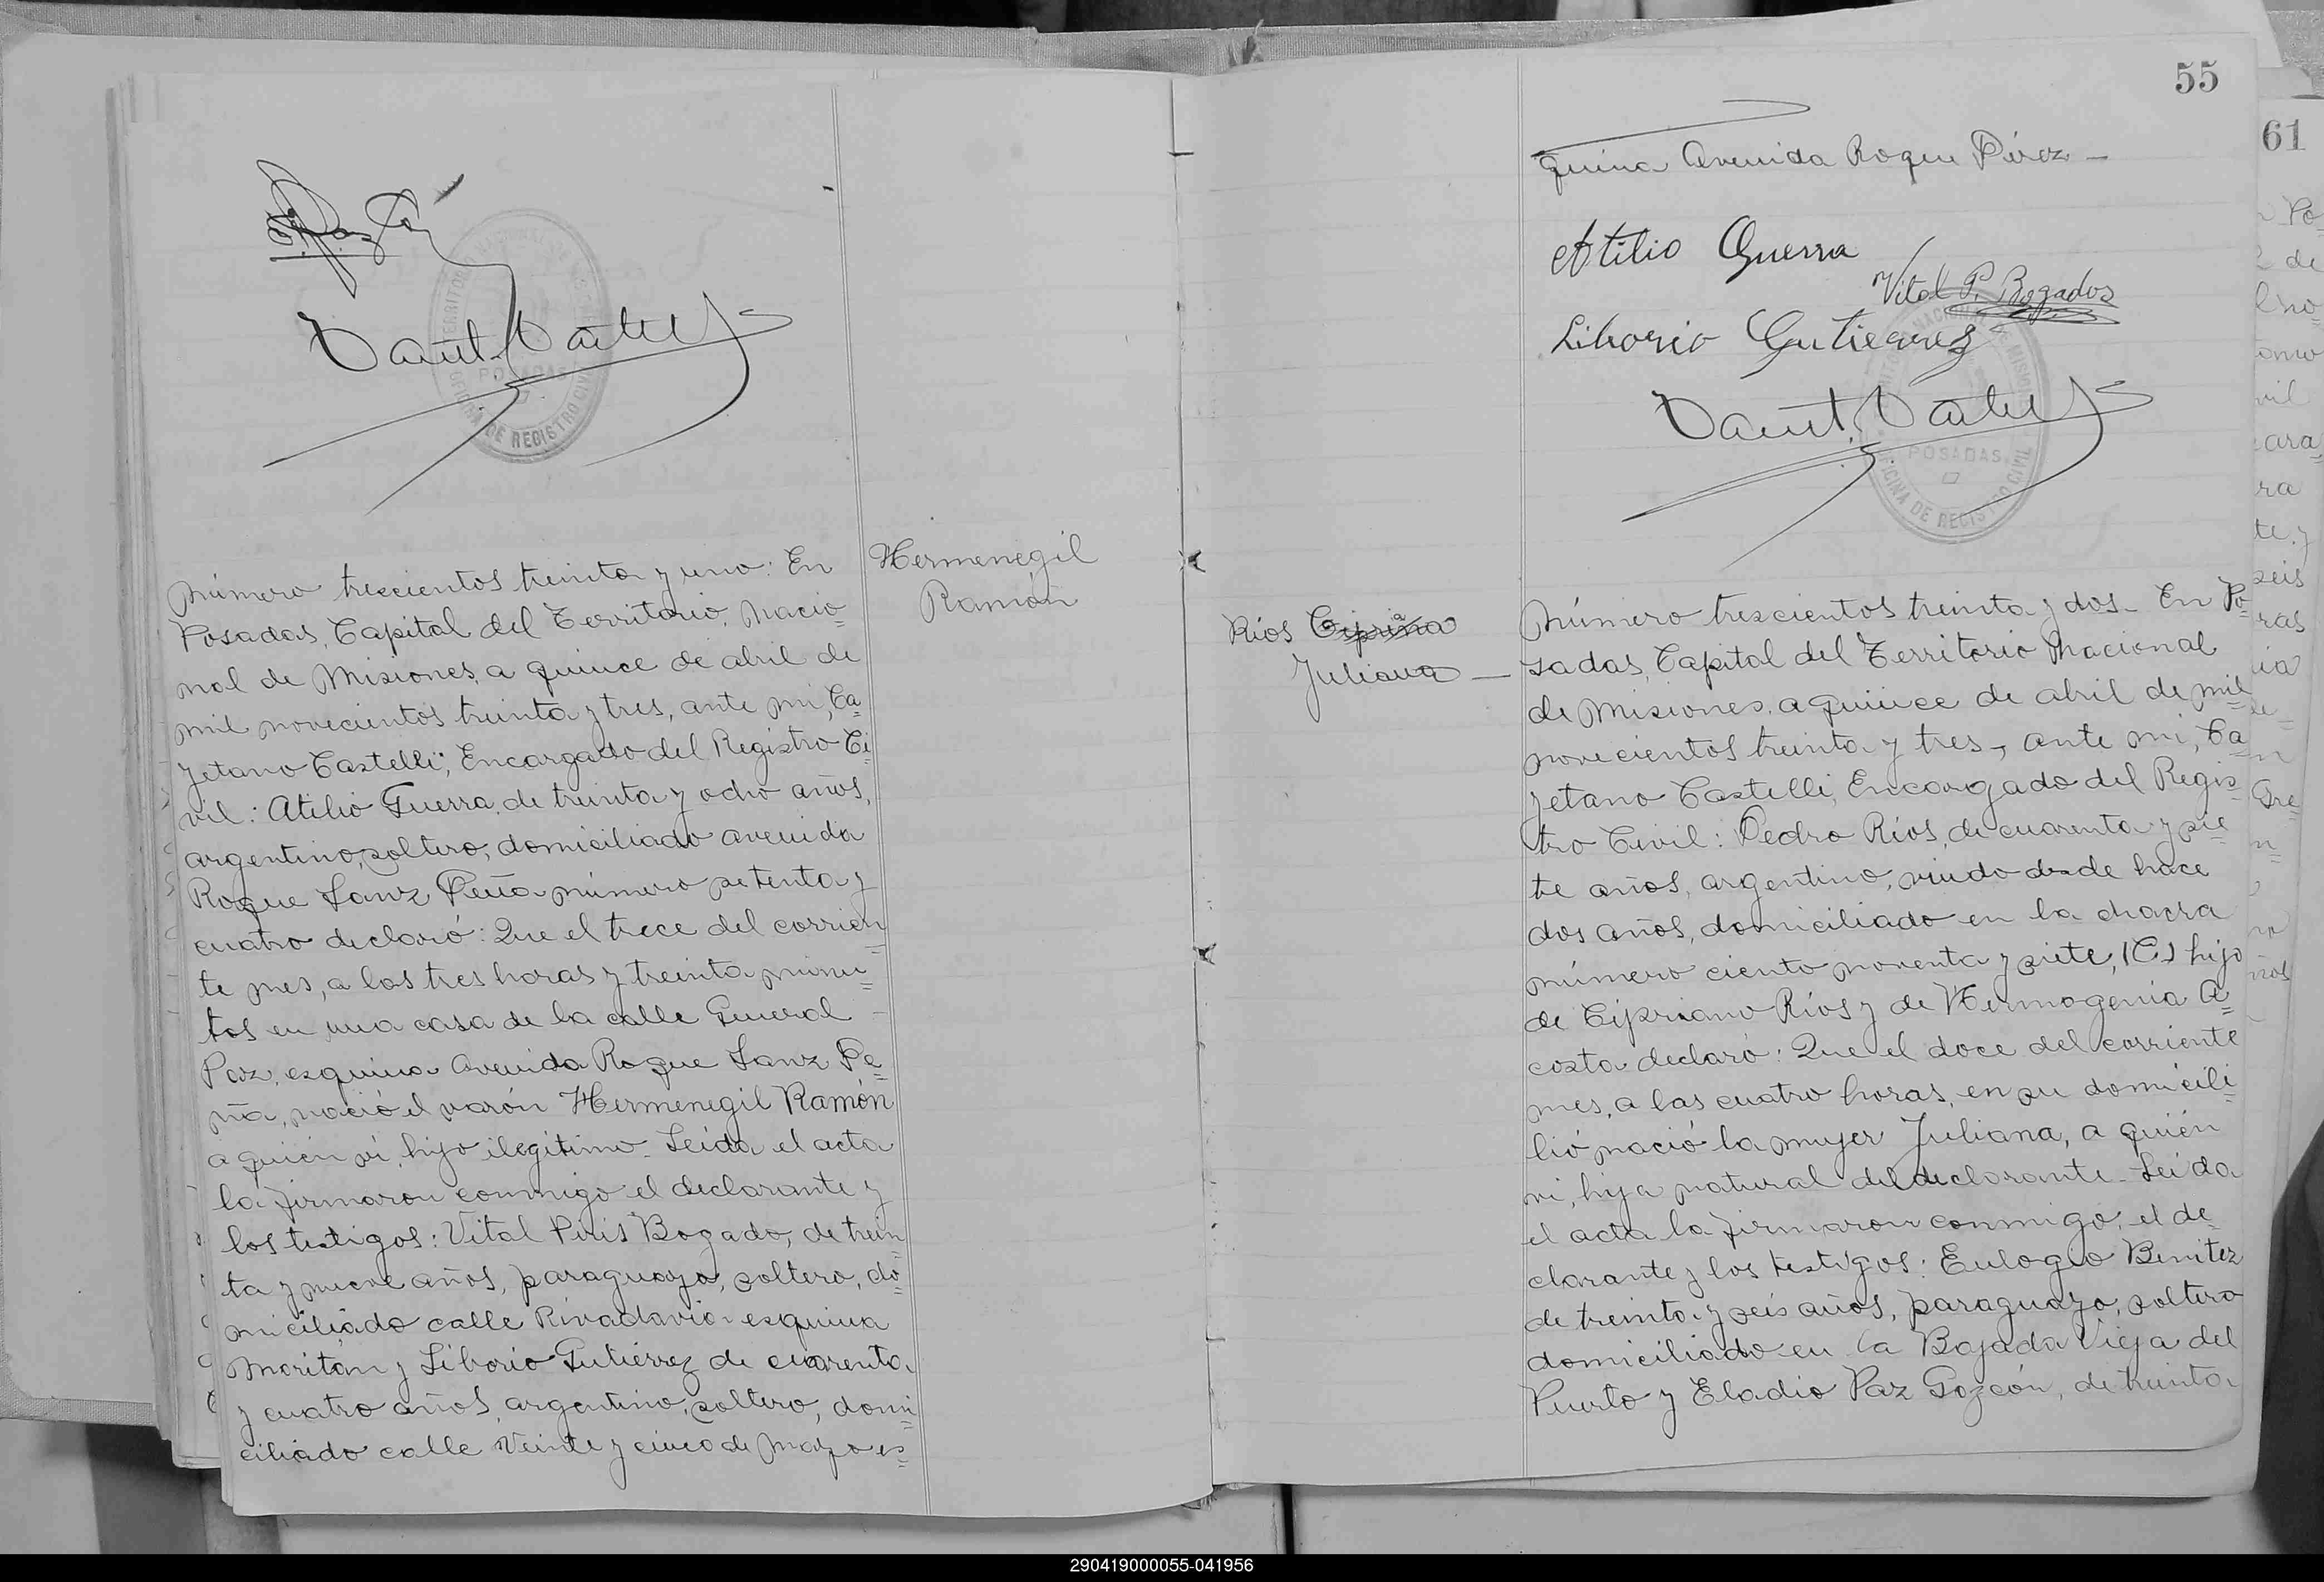 Número trescientos treinta y uno: En
Posadas, Capital del Territorio Nacio=
nal de Misiones, a quince de abril de
mil novecientos treinta y tres, ante mi, Ca=
yetano Castelli, Encargado del Registro Ci=
vil: Atilio Guerra, de treinta y ocho años,
argentino, soltero, domiciliado avenida
Roque Sanz Peña número setenta y
cuatro declaró: Que el trece del corrien=
te mes, a las tres horas y treinta minu=
tos en una casa de la calle General
Paz, esquina Avenida Roque Sanz Pe=
ña, nació el varón Hermenegil Ramón
a quién ví, hijo ilegítimo. Leída el acta
la firmaron conmigo el declarante y
los testigos: Vital Bogado, de trein=
ta y nueve años, paraguayo, soltero, do=
miciliado calle Rivadavia esquina
y Liborio Gutiérrez de cuarenta
y cuatro años, argentino, soltero, domi=
ciliado calle Veinte y cinco de Mayo es=
Hermenegil
Ramón
TERRITORIO NACIONAL
POSADAS
OFICINA DE REGISTRO CIVIL
55
quina Avenida Roque Pérez -
Atilio Guerra
Vital P. Bogados
Liborio Gutierrez
POSADAS
OFICINA DE REGISTRO CIVIL
Ríos Cipriana
Juliana —
Número trescientos treinta y dos - En Po=
sadas, Capital del Territorio Nacional
de Misiones, a quince de abril de mil
novecientos treinta y tres, ante mi, Ca=
yetano Castelli, Encargado del Regis=
tro Civil: Pedro Ríos, de cuarenta y sie=
te años, argentino, viudo desde hace
dos años, domiciliado en la chacra
número ciento noventa y siete, (C) hijo
de Cipriano Ríos y de Hermogenia A=
costa declaró: Que el doce del corriente
mes, a las cuatro horas, en su domicili=
lió nació la mujer Juliana, a quién
vi, hija natural del declarante. Leída
el acta la firmaron conmigo, el de=
clarante y los testigos: Eulogio Benitez
de treinta y seis años, paraguayo, soltero
domiciliado en la Bajada Vieja del
Puerto y Eladio Paz de treinta
61
290419000055-041956